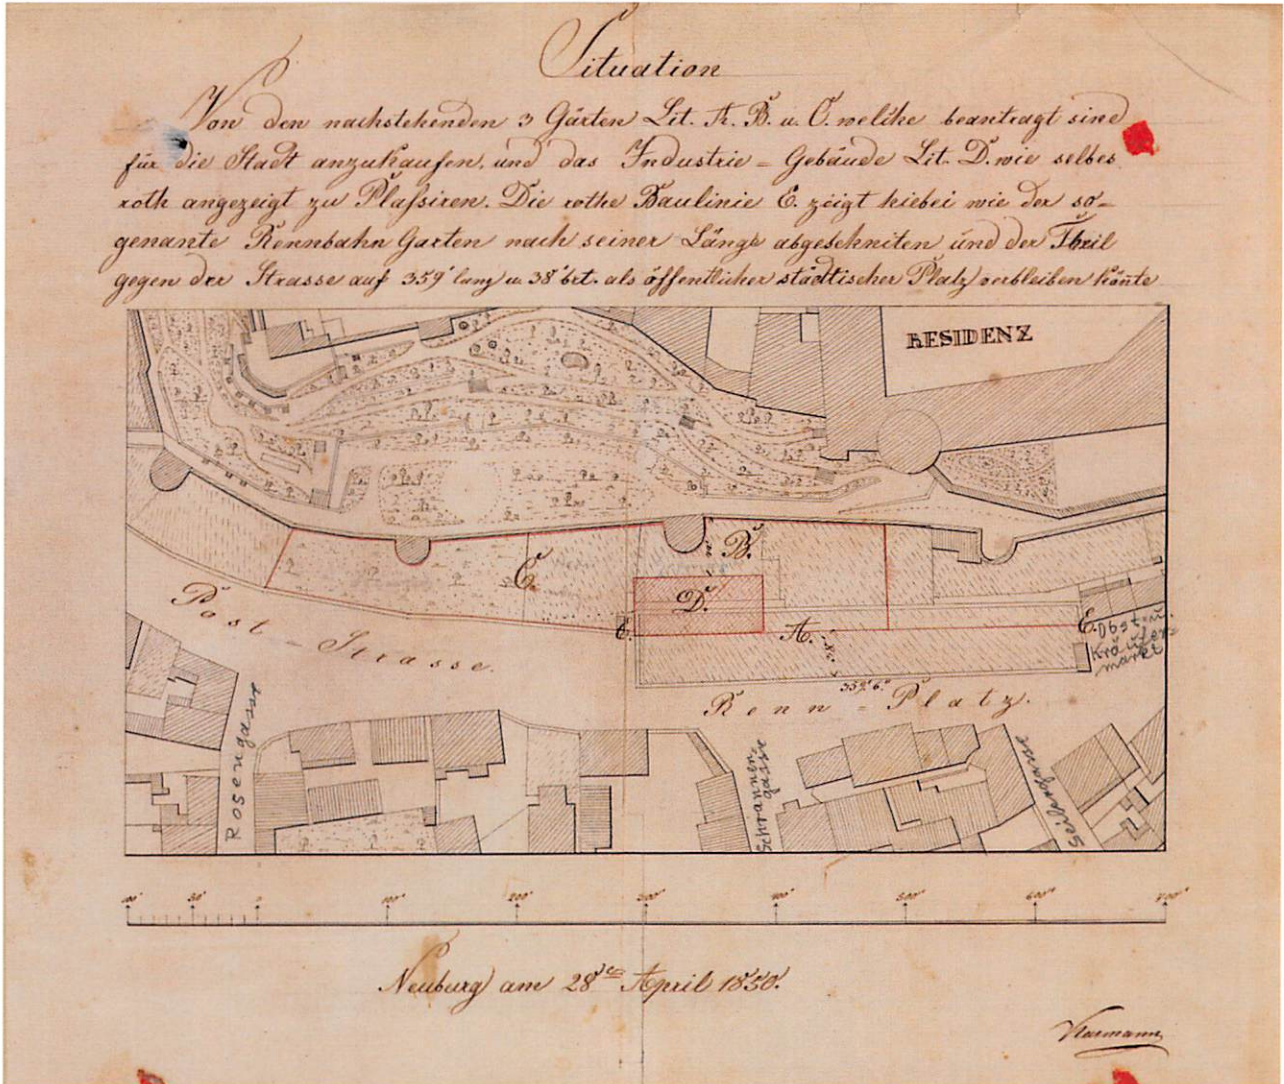 Situation
Von den nachstehenden 3 Gärten Lit. A. B. u. C. welche beantragt sind
für die Stadt anzukaufen, und das Industrie = Gebäude Lit. D. wie selbes
roth angezeigt zu Plassiren. Die rothe Baulinie E. zeigt hiebei wie der so=
genante Rennbahn Garten nach seiner Länge abgeschniten und der Theil
gegen der Strasse auf 359' lang u. 38' brt. als öffentlicher städtischer Platz verbleiben könte
RESIDENZ
B.
C.
D.
A.
E.
E.
Obst. u.
Kräuter
markt
38'
359' 6"
Post = Strasse.
Renn = Platz.
Rosengasse
Schrannen
gasse
100' 50' 0 100' 200' 300' 400' 500' 600' 700'
Neuburg am 28ten April 1850.